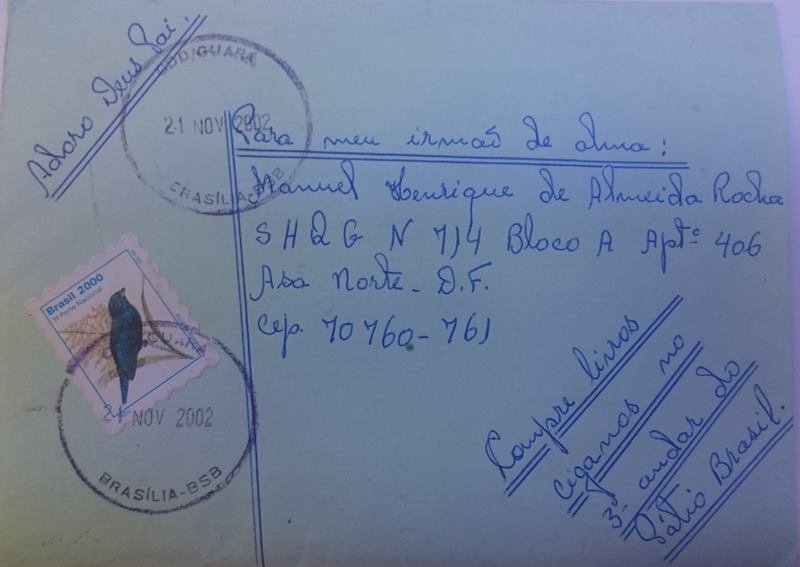 Adoro Deus Pai.
CDD/GUARÁ
21 NOV 2002
BRASÍLIA-BSB
Para meu irmão de alma:
Manuel Henrique de Almeida Rocha
S H Q G N 714 Bloco A Aptº 406
Asa Norte - D.F.
Cep. 70 760-761
Brasil 2000
1º Porte Nacional
GUARÁ
21 NOV 2002
BRASÍLIA-BSB
Compre livros
ciganos no
3º andar do
Pátio Brasil.